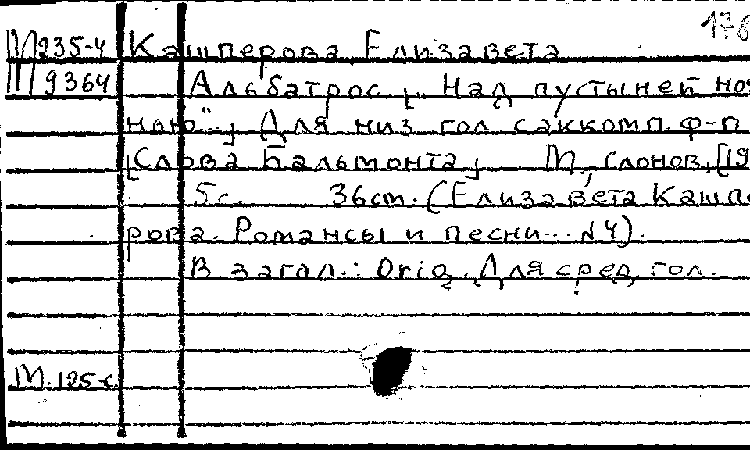 176
М235-4 Кашперова Елизавета
М9364 Альбатрос „Над пустыней ноч
ною“. Для низ. гол. с аккомп. ф-п.
[Слова Бальмонта]. М., Слонов, [19
5 с. 36 cm. (Елизавета Кашпе
рова. Романсы и песни... №4).
В загл.: Orig. Для сред. гол.
М.125-